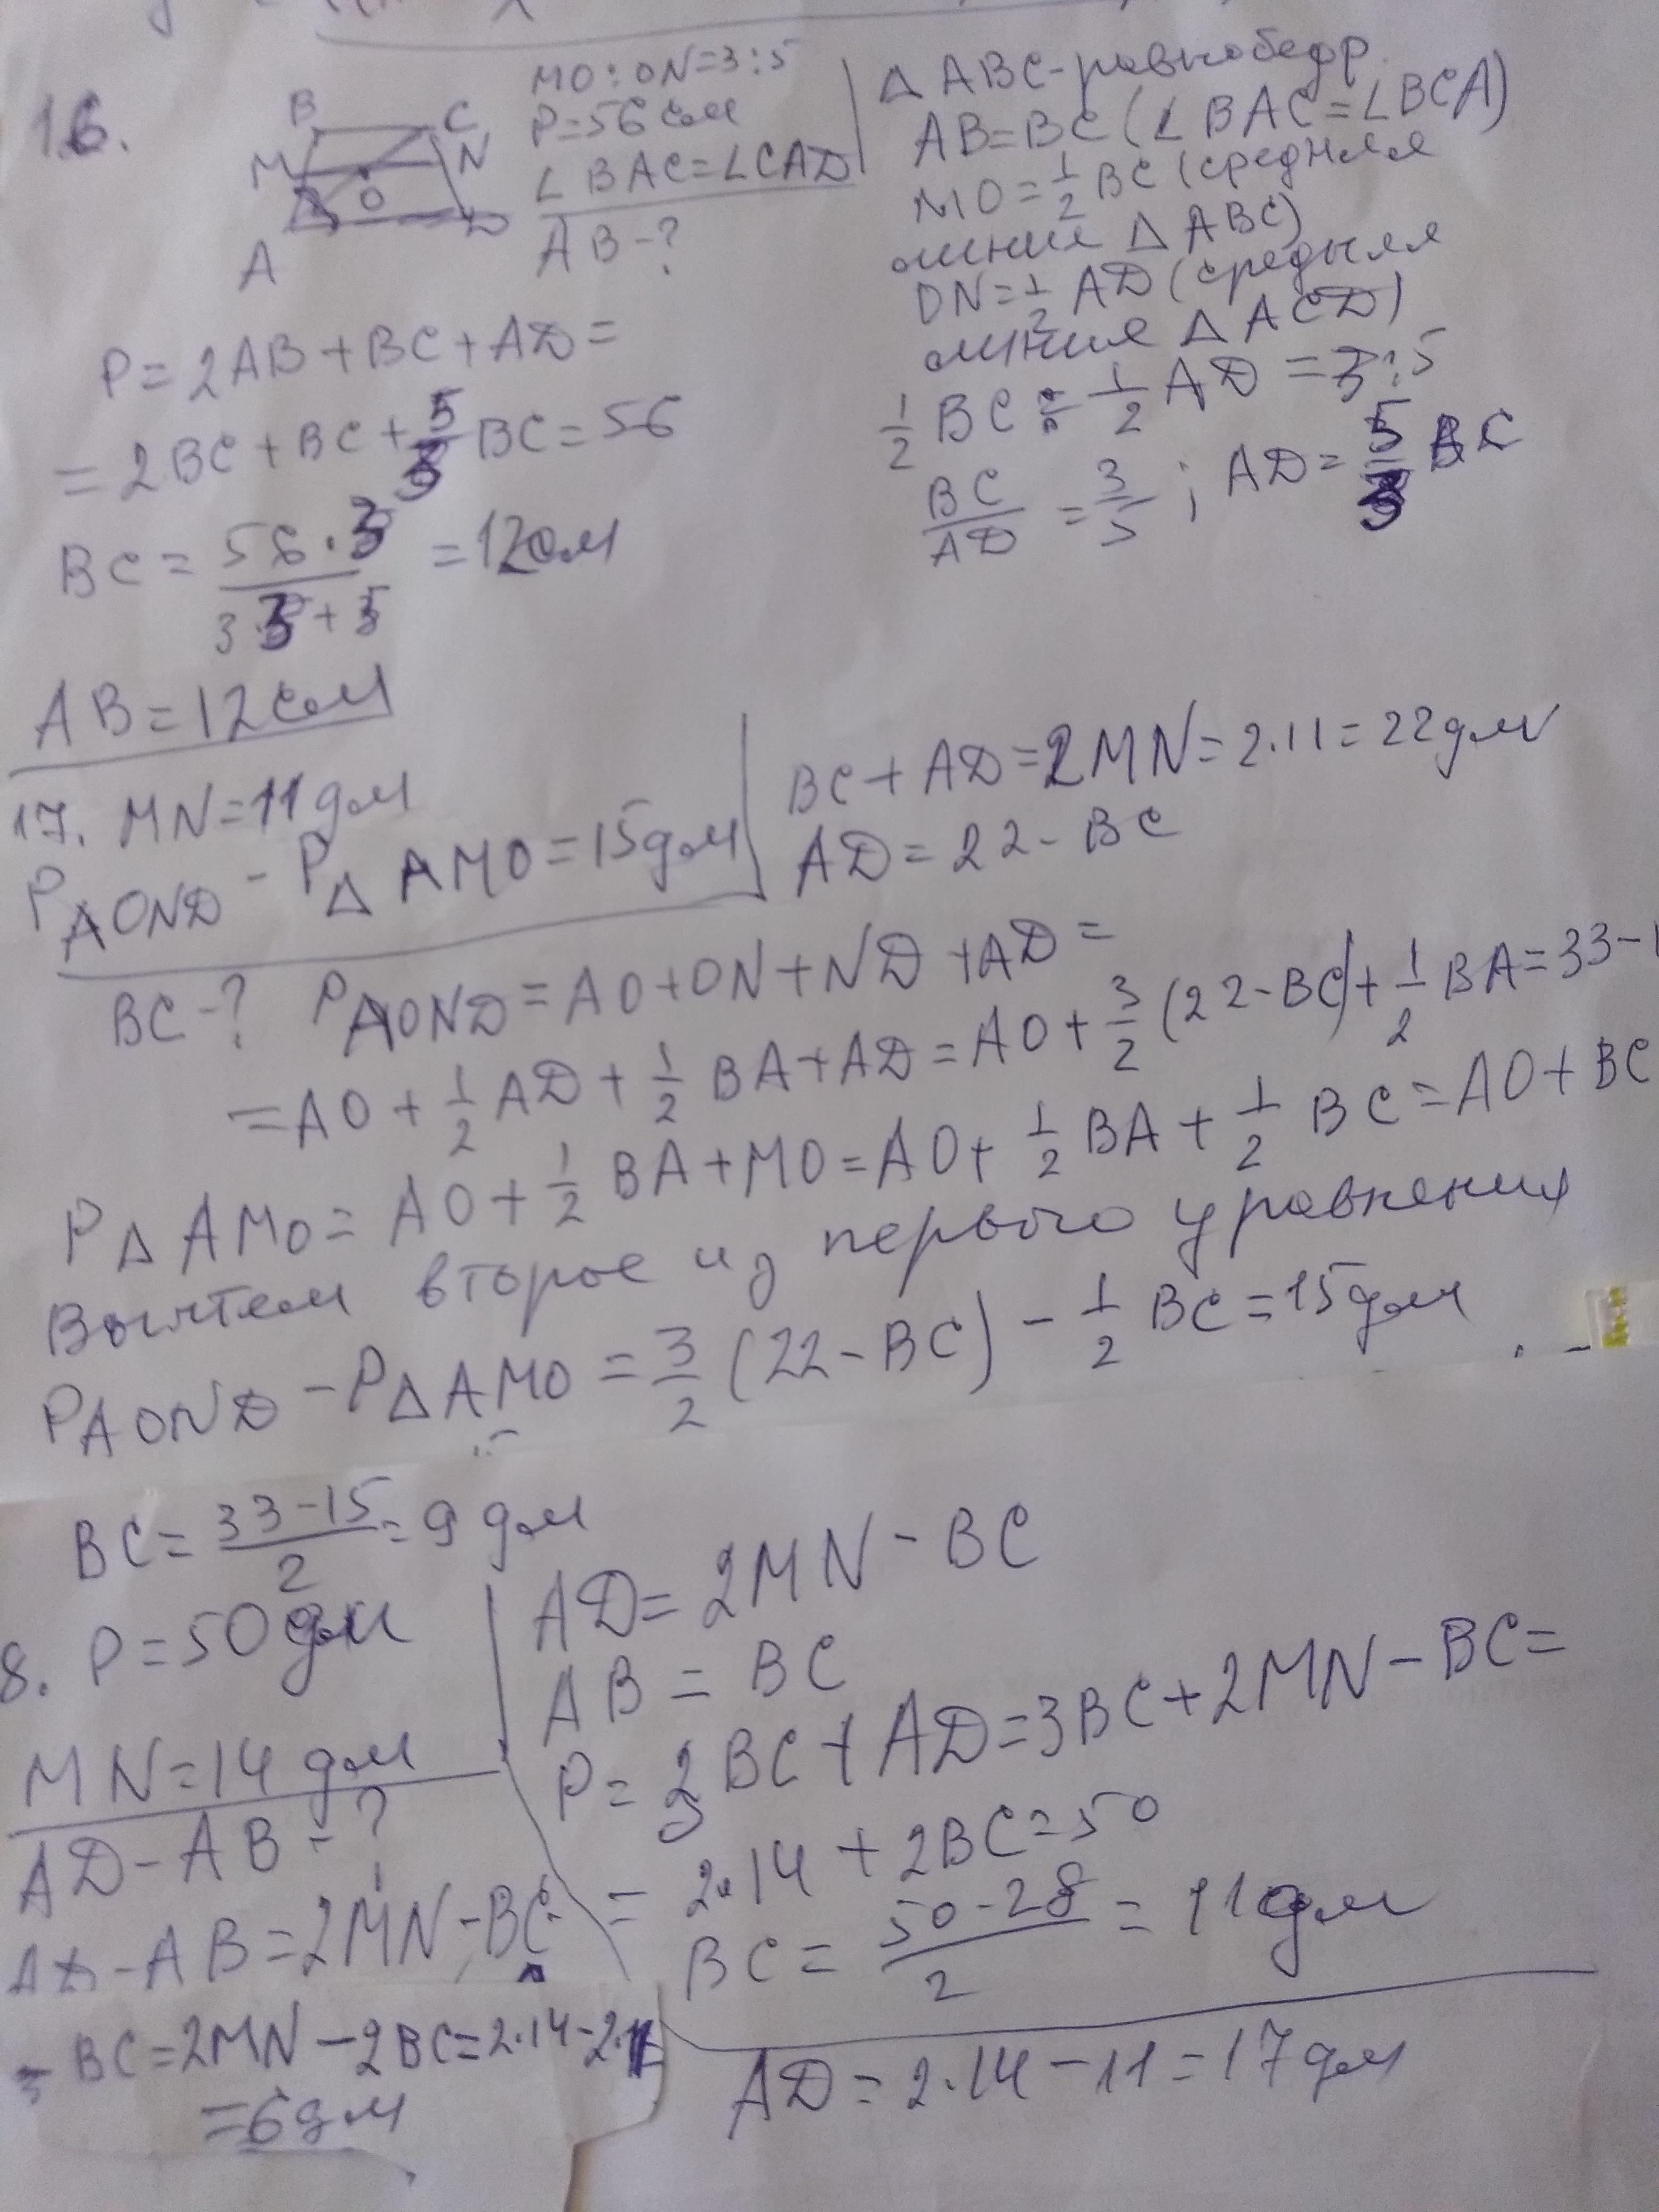 16.
B C
M N
O
A D
MO:ON=3:5
P=56 см
∠BAC=∠CAD
AB-?
△ABC-равнобедр.
AB=BC (∠BAC=∠BCA)
MO=1/2 BC (средняя
линия △ABC)
ON=1/2 AD (средняя
линия △ACD)
1/2 BC : 1/2 AD = 3:5
BC/AD = 3/5 ; AD = 5/3 BC
P=2AB+BC+AD=
=2BC+BC+5/3 BC=56
BC= 56·3/3·3+5 =12см
AB=12см
17. MN=11дм
P AOND - P△AMO=15дм
BC-?
BC+AD=2MN=2·11=22дм
AD=22-BC
P AOND=AO+ON+ND+AD=
=AO+1/2 AD+1/2 BA+AD=AO+3/2 (22-BC)+1/2 BA=33-
P△AMO=AO+1/2 BA+MO=AO+1/2 BA+1/2 BC=AO+BC
Вычтем второе из первого уравнения
P AOND-P△AMO=3/2 (22-BC)-1/2 BC=15дм
BC= 33-15/2 =9 дм
8. P=50дм
MN=14 дм
AD-AB-?
AD-AB=2MN-BC-
-BC=2MN-2BC=2·14-2·11
=6дм
AD=2MN-BC
AB=BC
P=3BC+AD=3BC+2MN-BC=
=2·14+2BC=50
BC= 50-28/2 =11дм
AD=2·14-11=17дм